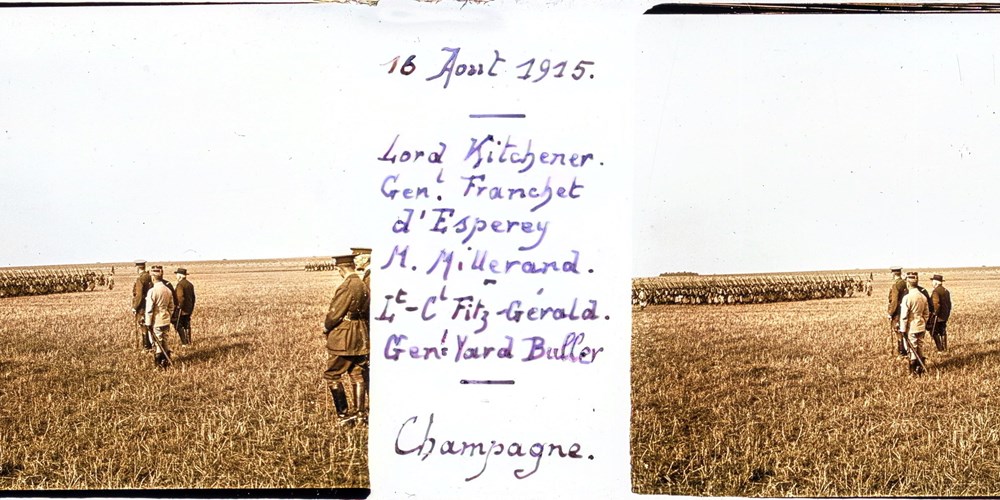 16 Aout 1915.
Lord Kitchener.
Gen.l Franchet
d'Esperey
M. Millerand.
Lt-Cl Fitz-Gérald.
Gen.l Yard Buller
Champagne.